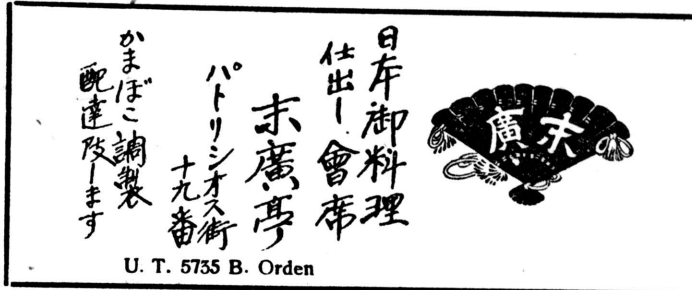 末廣
日本御料理
仕出し 會席
末廣亭
パトリシオス街
十九番
かまぼこ調製
配達致します
U. T. 5735 B. Orden